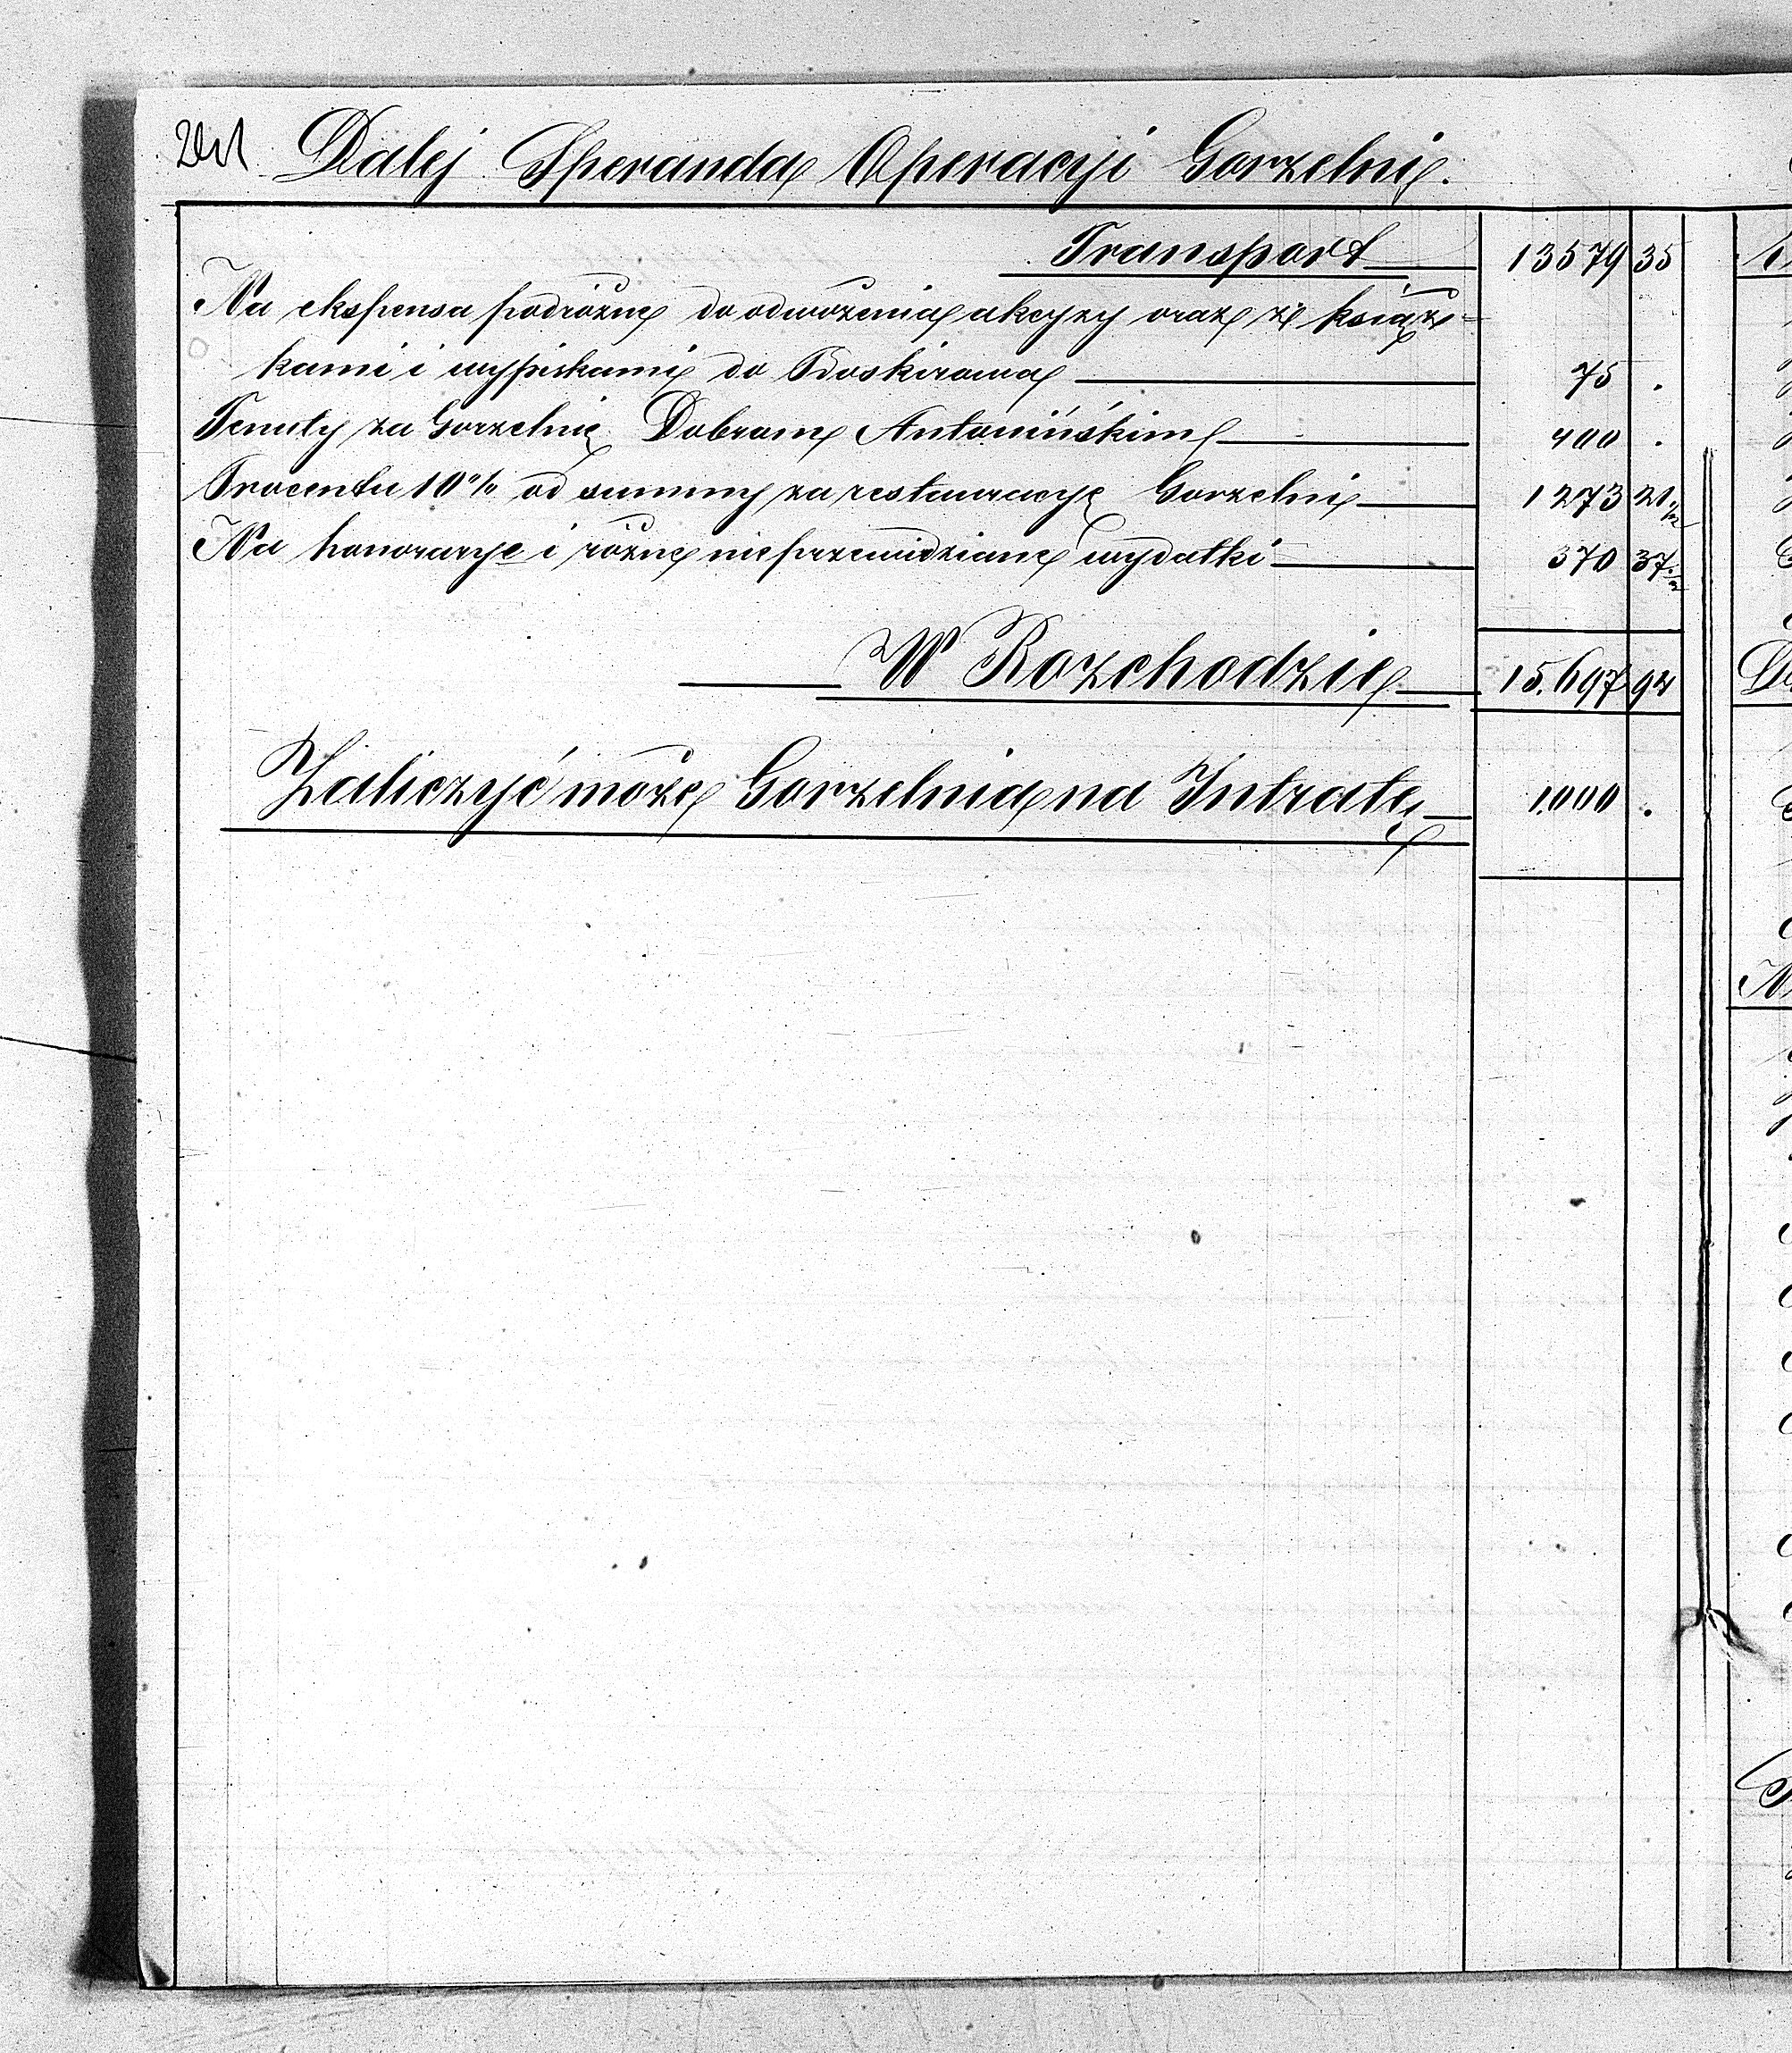 Dalej Speranda Operacyi Gorzelni.
Transport 13579 35
Na ekspensa podróżne do odwożenia akcyzy oraz ze książ=
kami i wypiskami do 75 .
Tenuty za Gorzelnię Dobrom Antonińskim 400 .
Procentu 10% od summy za restauracyę Gorzelni 1273 21 1/2
Na honoraryе i różne nieprzewidziane wydatki 370 37 1/2
W Rozchodzie 15.697 94
Zaliczyć może Gorzelnia na Intratę 1.000 .